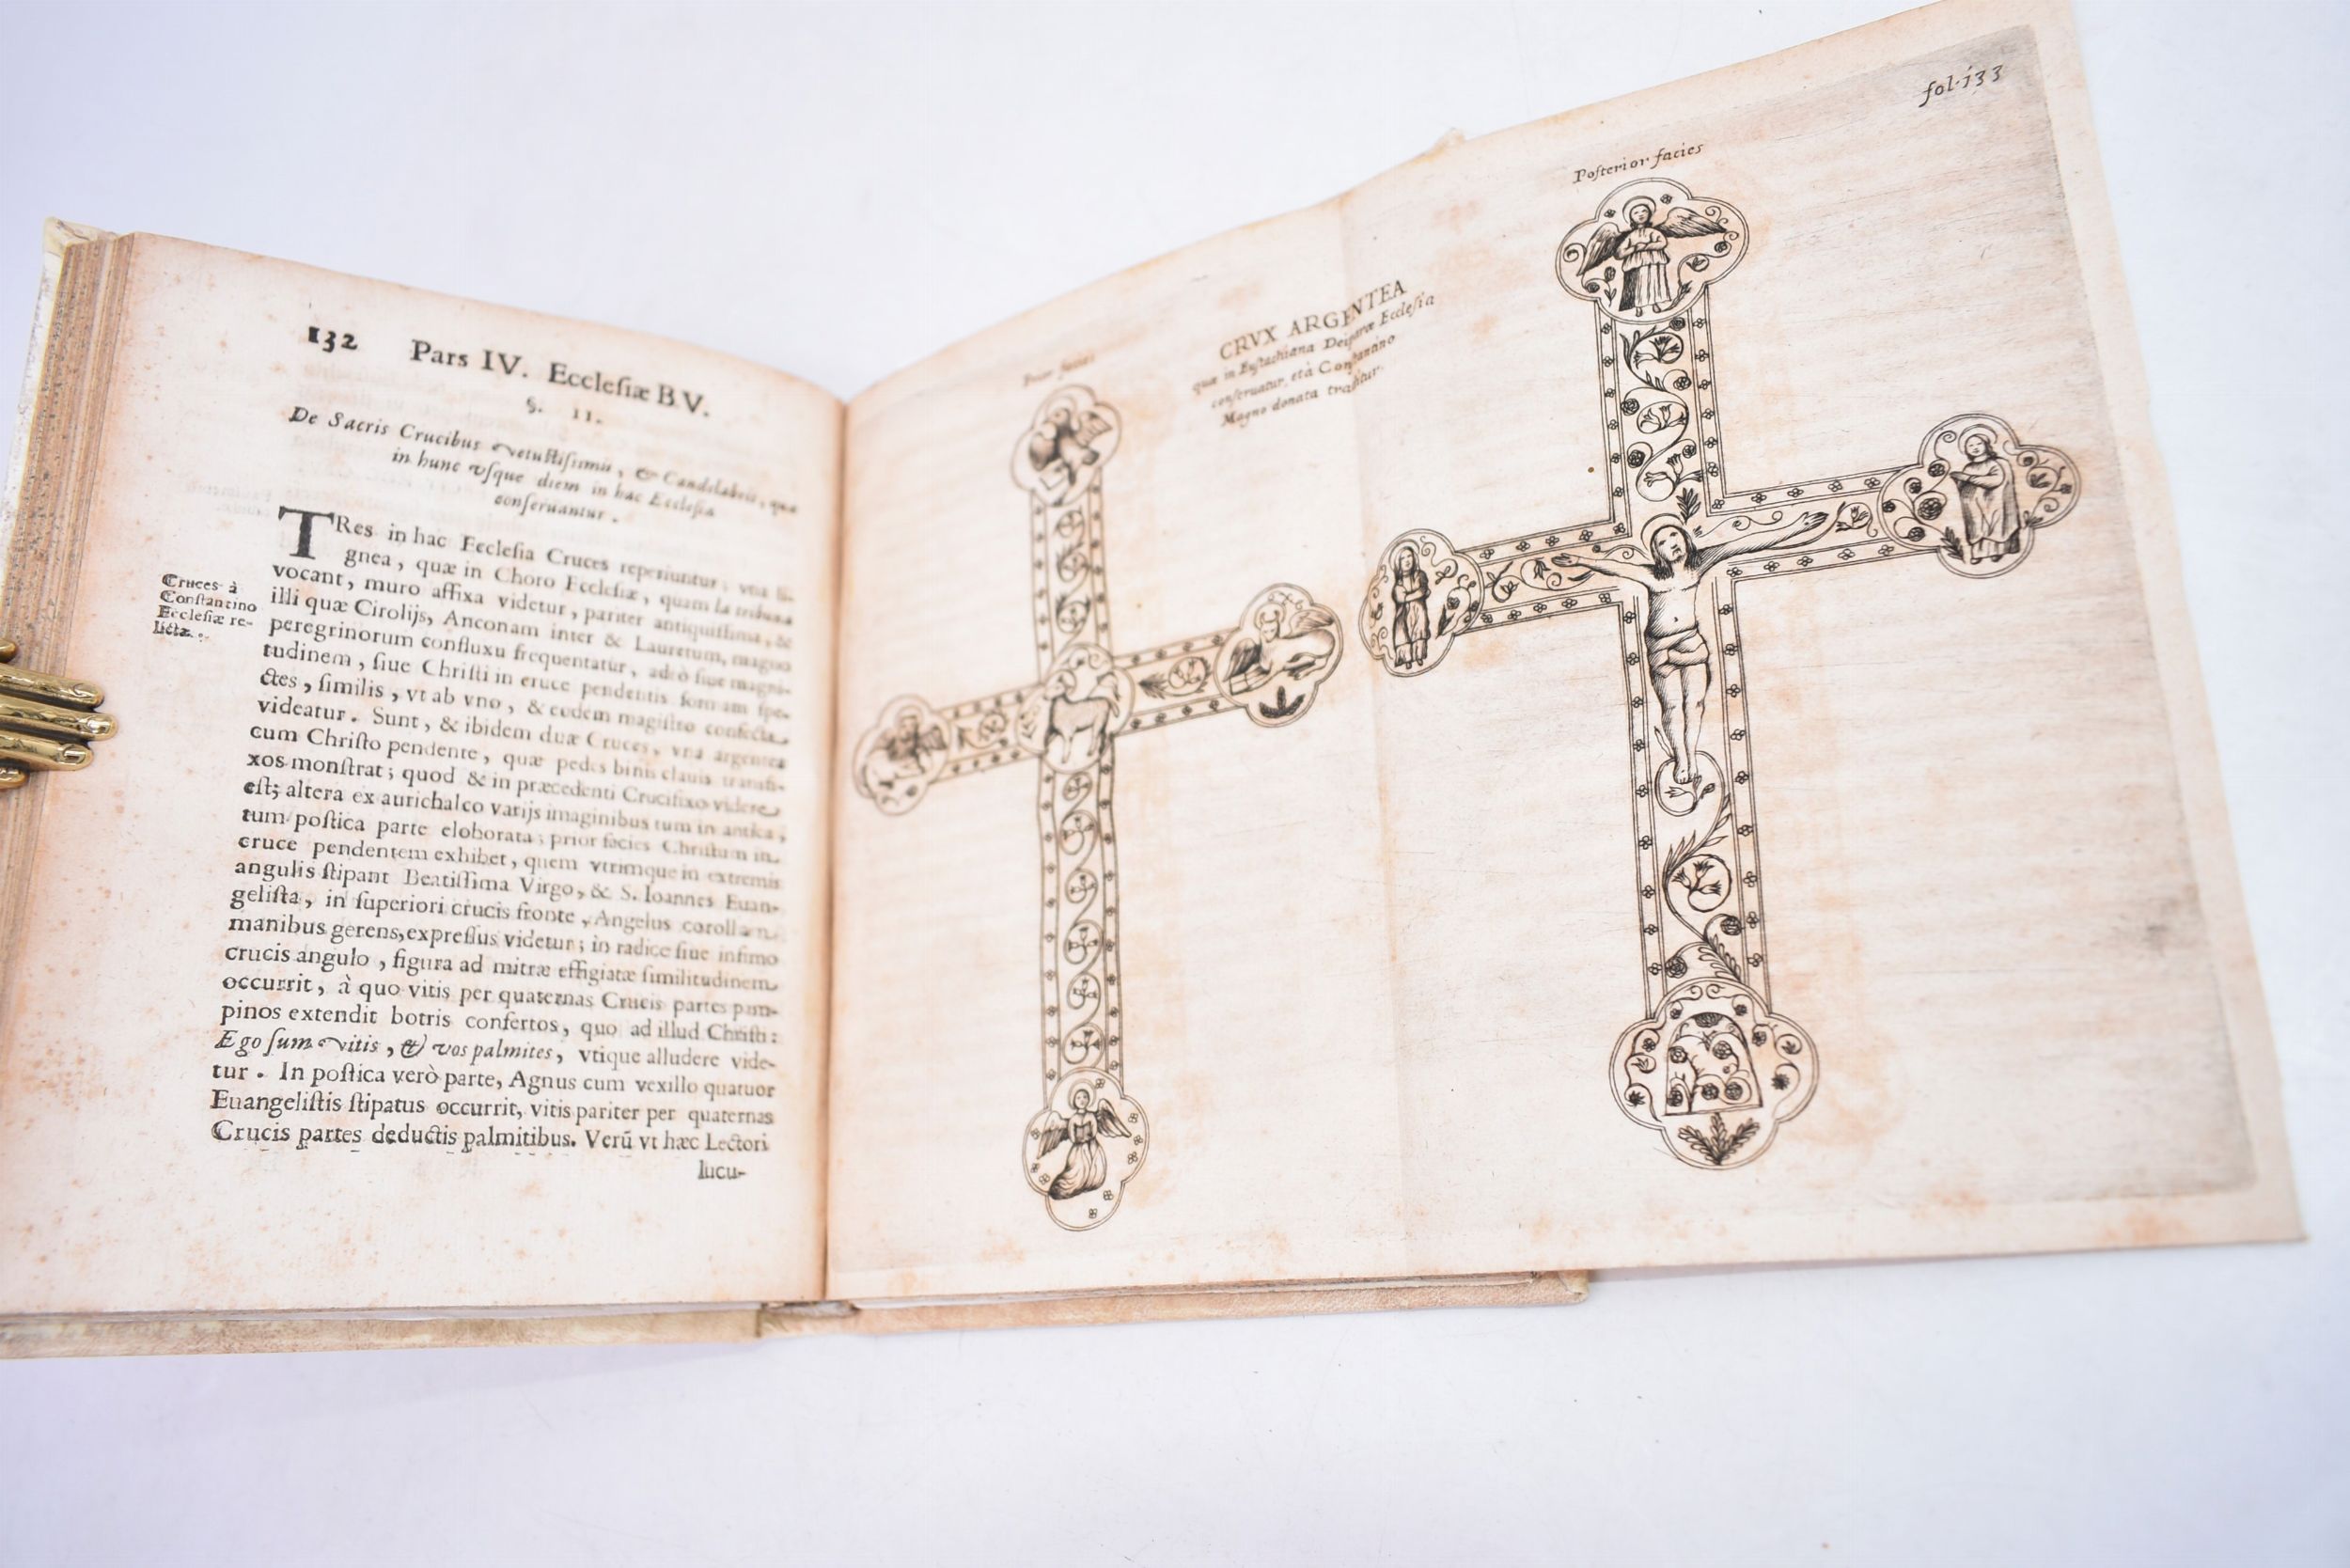 132 Pars IV. Eccleſiæ B.V.
§. II.
De Sacris Crucibus vetuſtiſsimis, & Candelabris, quæ
in hunc vſque diem in hac Eccleſia
conſeruantur.
TRes in hac Eccleſia Cruces reperiuntur, vna li-
gnea, quæ in Choro Eccleſiæ, quam la tribuna
vocant, muro affixa videtur, pariter antiquiſſima, &
illi quæ Cirolijs, Anconam inter & Lauretum, magno
peregrinorum confluxu frequentatur, adeò ſiue magni-
tudinem, ſiue Chriſti in cruce pendentis formam ſpe-
ctes, ſimilis, vt ab vno, & eodem magiſtro confecta
videatur. Sunt, & ibidem duæ Cruces, vna argentea
cum Chriſto pendente, quæ pedes binis clauis transfi-
xos monſtrat; quod & in præcedenti Crucifixo videre
eſt; altera ex aurichalco varijs imaginibus tum in antica,
tum poſtica parte eloborata; prior facies Chriſtum in
cruce pendentem exhibet, quem vtrimque in extremis
angulis ſtipant Beatiſſima Virgo, & S. Ioannes Euan-
geliſta, in ſuperiori crucis fronte, Angelus corollam
manibus gerens, expreſſus videtur; in radice ſiue infimo
crucis angulo, figura ad mitræ effigiatæ ſimilitudinem
occurrit, à quo vitis per quaternas Crucis partes pam-
pinos extendit botris confertos, quo ad illud Chriſti:
Ego ſum vitis, & vos palmites, vtique alludere vide-
tur. In poſtica verò parte, Agnus cum vexillo quatuor
Euangeliſtis ſtipatus occurrit, vitis pariter per quaternas
Crucis partes deductis palmitibus. Verũ vt hæc Lectori
lucu-
Cruces à
Conſtantino
Eccleſiæ re-
lictæ.
fol. 133
Prior facies
CRVX ARGENTEA
quæ in Euſtachiana Deiparæ Eccleſia
conſeruatur, et à Conſtantino
Magno donata traditur.
Poſterior facies